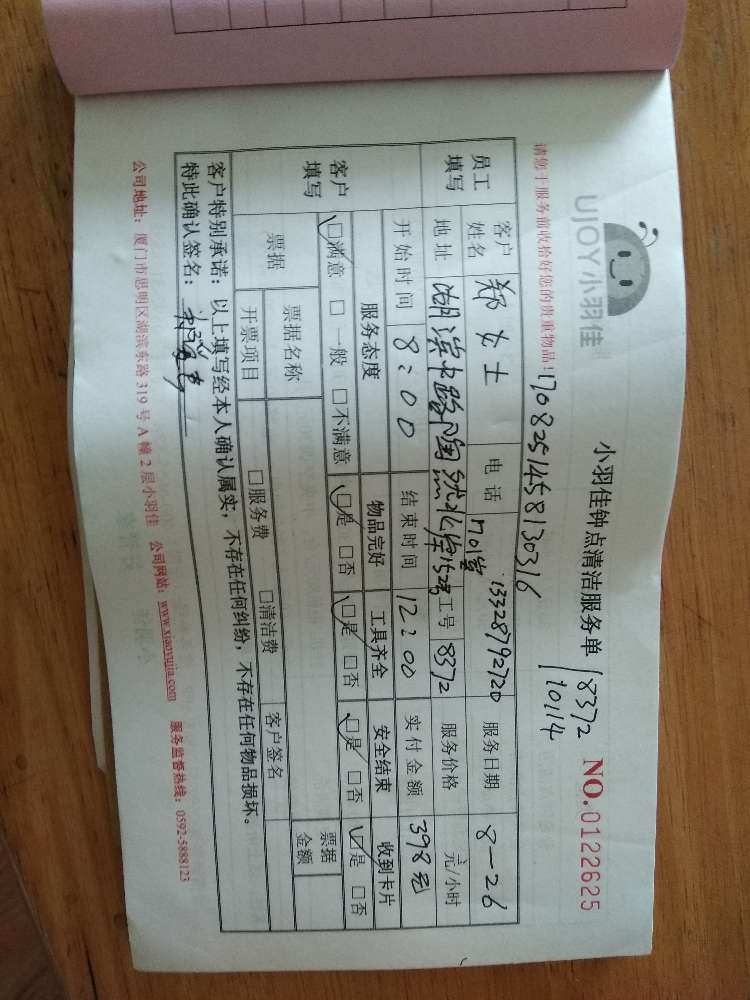 UJOY小羽佳
小羽佳钟点清洁服务单
8372
10114
NO.0122625
请您于服务前收拾好您的贵重物品！
170825145813​0316
员工填写
客户姓名 郑女士 电话 13328792720 服务日期 8-26
701室
地址 湖滨中路 工号 8372 服务价格 元/小时
开始时间 8:00 结束时间 12:00 实付金额 398元
客户填写
服务态度 物品完好 工具齐全 安全结束 收到卡片
☑满意 □一般 □不满意 ☑是 □否 ☑是 □否 ☑是 □否 ☑是 □否
票据 票据名称 票据金额
开票项目 □服务费 □清洁费 客户签名
客户特别承诺：以上填写经本人确认属实，不存在任何纠纷，不存在任何物品损坏。
特此确认签名：
公司地址：厦门市思明区湖滨东路319号A幢2层小羽佳 公司网站：www.xiaoyujia.com 服务监督热线：0592-5888123